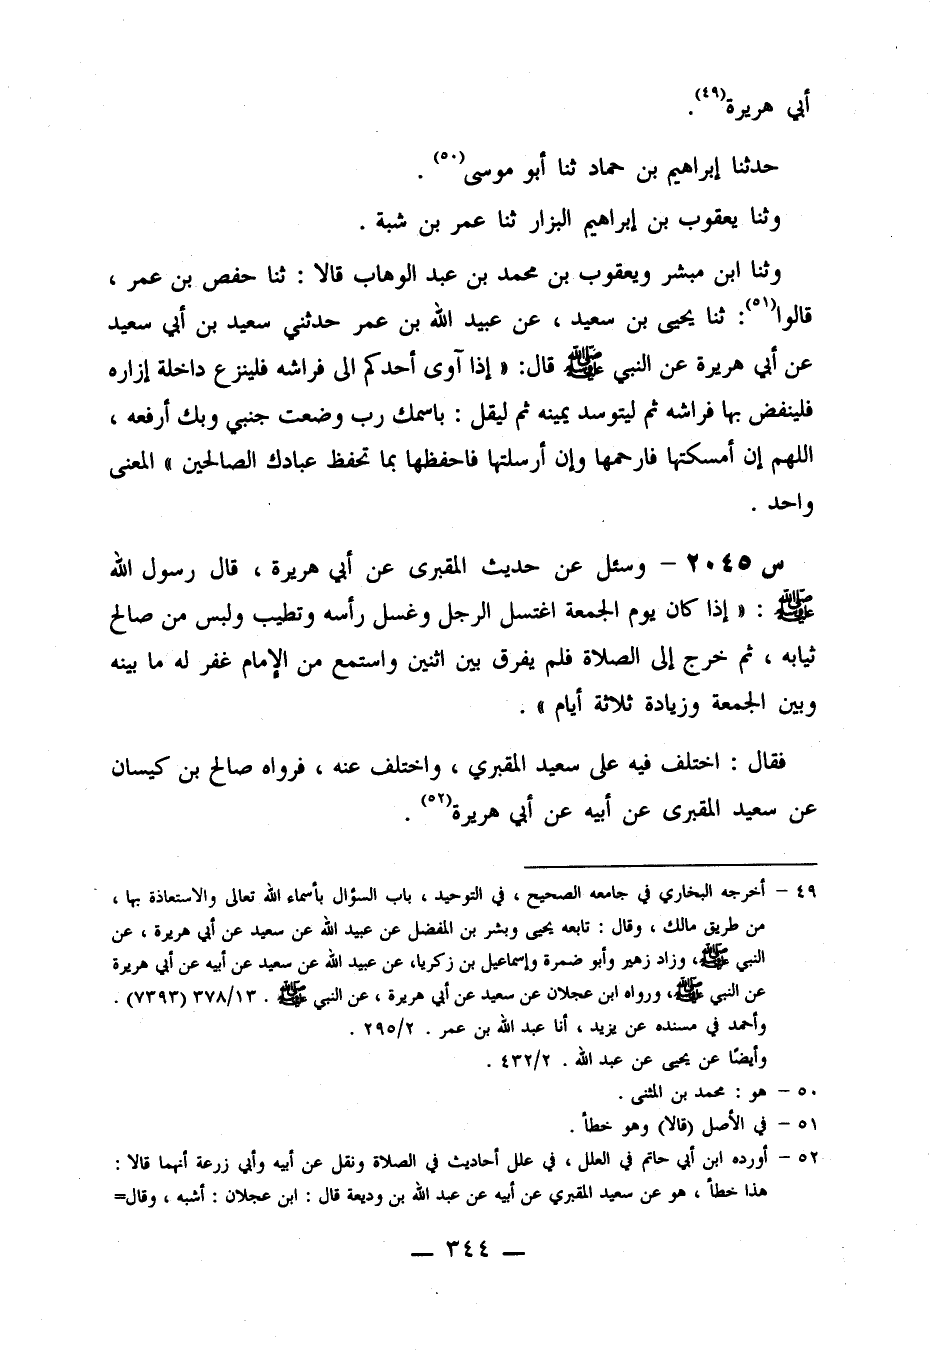 أبي هريرة(٤٩).
حدثنا إبراهيم بن حماد ثنا أبو موسى(٥٠) .
وثنا يعقوب بن إبراهيم البزار ثنا عمر بن شبة .
وثنا ابن مبشر ويعقوب بن محمد بن عبد الوهاب قالا : ثنا حفص بن عمر ،
قالوا(٥١): ثنا يحيى بن سعيد ، عن عبيد الله بن عمر حدثني سعيد بن أبي سعيد
عن أبي هريرة عن النبي ﷺ قال: « إذا آوى أحدكم الى فراشه فلينزع داخلة إزاره
فلينفض بها فراشه ثم ليتوسد يمينه ثم ليقل : باسمك رب وضعت جنبي وبك أرفعه ،
اللهم إن أمسكتها فارحمها وإن أرسلتها فاحفظها بما تحفظ عبادك الصالحين » المعنى
واحد .
س ٢٠٤٥ – وسئل عن حديث المقبرى عن أبي هريرة ، قال رسول الله
ﷺ : « إذا كان يوم الجمعة اغتسل الرجل وغسل رأسه وتطيب ولبس من صالح
ثيابه ، ثم خرج إلى الصلاة فلم يفرق بين اثنين واستمع من الإمام غفر له ما بينه
وبين الجمعة وزيادة ثلاثة أيام » .
فقال : اختلف فيه على سعيد المقبري ، واختلف عنه ، فرواه صالح بن كيسان
عن سعيد المقبرى عن أبيه عن أبي هريرة(٥٢) .
٤٩ – أخرجه البخاري في جامعه الصحيح ، في التوحيد ، باب السؤال بأسماء الله تعالى والاستعاذة بها ،
من طريق مالك ، وقال : تابعه يحيى وبشر بن المفضل عن عبيد الله عن سعيد عن أبي هريرة ، عن
النبي ﷺ، وزاد زهير وأبو ضمرة وإسماعيل بن زكريا، عن عبيد الله عن سعيد عن أبيه عن أبي هريرة
عن النبي ﷺ، ورواه ابن عجلان عن سعيد عن أبي هريرة ، عن النبي ﷺ . ٣٧٨/١٣ (٧٣٩٣) .
وأحمد في مسنده عن يزيد ، أنا عبد الله بن عمر . ٢٩٥/٢ .
وأيضًا عن يحيى عن عبد الله . ٤٣٢/٢ .
٥٠ – هو : محمد بن المثنى .
٥١ – في الأصل (قالا) وهو خطأ .
٥٢ – أورده ابن أبي حاتم في العلل ، في علل أحاديث في الصلاة ونقل عن أبيه وأبي زرعة أنهما قالا :
هذا خطأ ، هو عن سعيد المقبري عن أبيه عن عبد الله بن وديعة قال : ابن عجلان : أشبه ، وقال=
— ٣٤٤ —